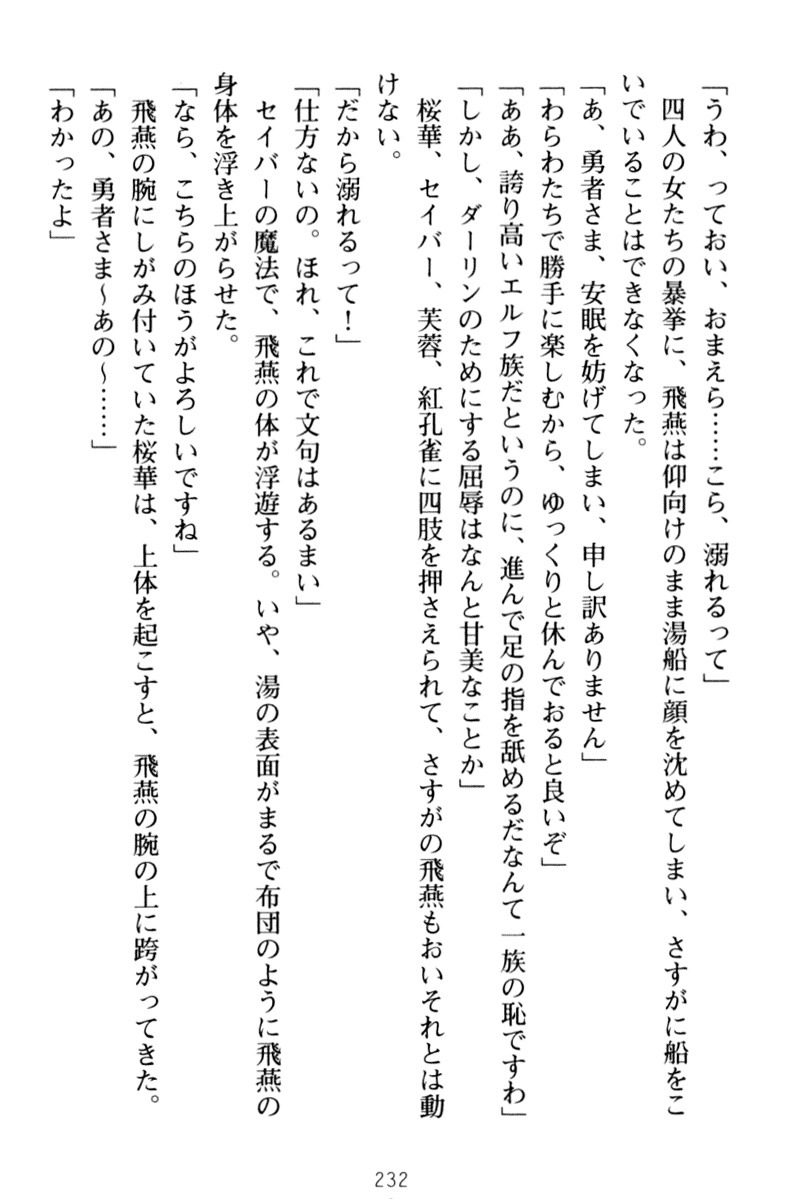 「うわ、っておい、おまえら……こら、溺れるって」
　四人の女たちの暴挙に、飛燕は仰向けのまま湯船に顔を沈めてしまい、さすがに船をこ
いでいることはできなくなった。
「あ、勇者さま、安眠を妨げてしまい、申し訳ありません」
「わらわたちで勝手に楽しむから、ゆっくりと休んでおると良いぞ」
「ああ、誇り高いエルフ族だというのに、進んで足の指を舐めるだなんて一族の恥ですわ」
「しかし、ダーリンのためにする屈辱はなんと甘美なことか」
　桜華、セイバー、芙蓉、紅孔雀に四肢を押さえられて、さすがの飛燕もおいそれとは動
けない。
「だから溺れるって！」
「仕方ないの。ほれ、これで文句はあるまい」
　セイバーの魔法で、飛燕の体が浮遊する。いや、湯の表面がまるで布団のように飛燕の
身体を浮き上がらせた。
「なら、こちらのほうがよろしいですね」
　飛燕の腕にしがみ付いていた桜華は、上体を起こすと、飛燕の腕の上に跨がってきた。
「あの、勇者さま～あの～……」
「わかったよ」
232